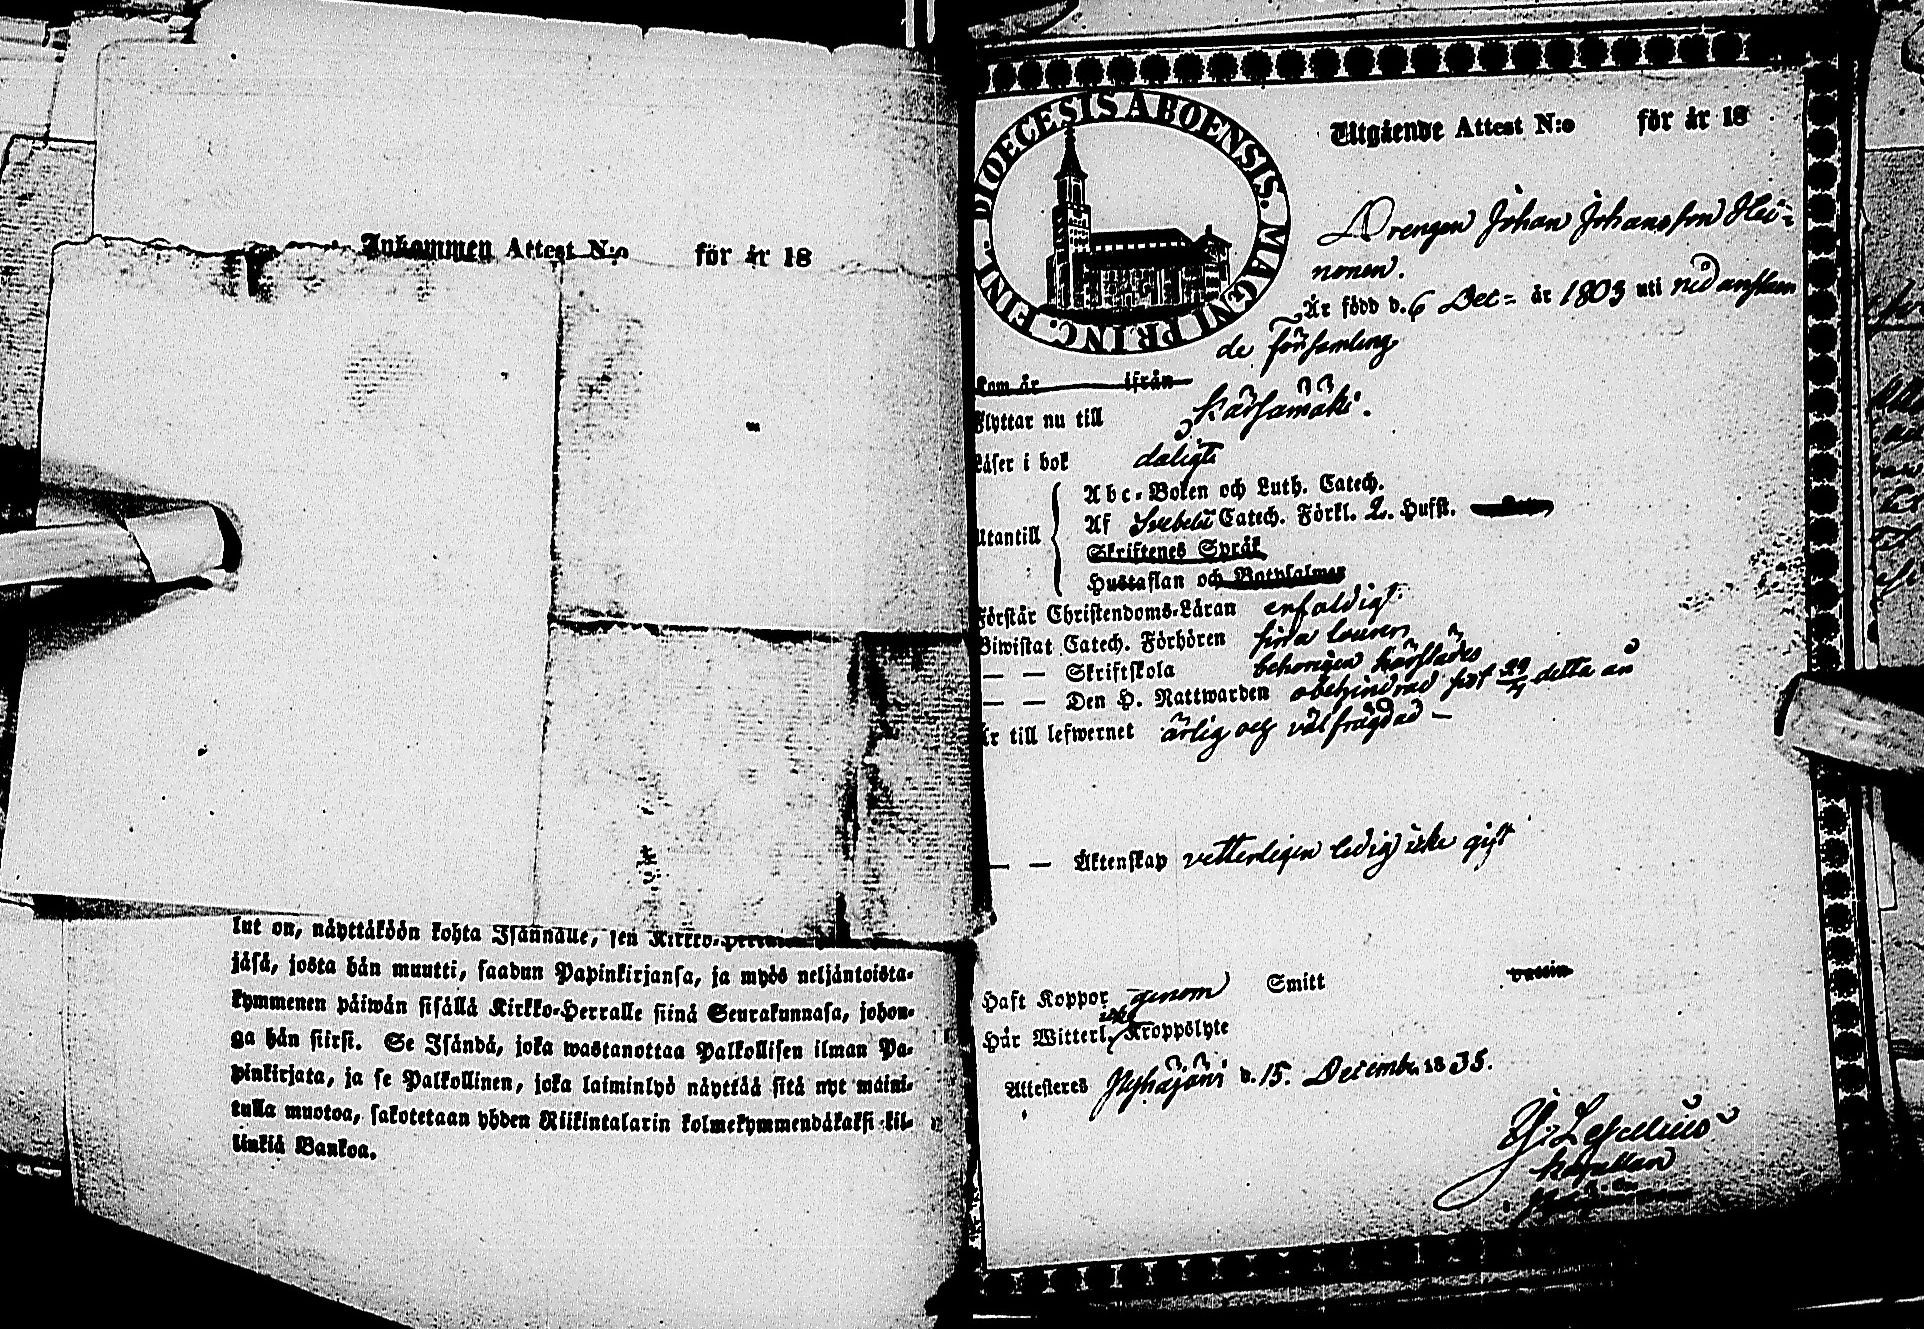 Inkommen Attest N:o för år 18
lut on, näyttäköön kohta Isännälle, sen Kirkko-
jäsä, josta hän muutti, saadun Papinkirjansa, ja myös neljäntoista-
kymmenen päiwän sisällä Kirkko-Herralle siinä Seurakunnasa, johon-
ga hän siirsi. Se Isändä, joka wastanottaa Palkollisen ilman Pa-
pinkirjata, ja se Palkollinen, joka laiminlyö näyttää sitä nyt maini-
tulla muotoa, sakotetaan yhden Riikintalarin kolmekymmendäkaksi kil-
linkiä Bankoa.
DIOECESIS ABOENSIS. MAGNI PRINC. FINL.
Utgående Attest N:o för år 18
Drengen Johan Johansson Hei-
nonen.
Är född d. 6 Dec= år 1803 uti nedanstam
de församling
Kom år ifrån
Flyttar nu till Kärsämäki.
Läser i bok dåligt
Utantill
Abc-Boken och Luth. Catech.
Af Svebelii Catech. Förkl. 2. Hufst.
Skriftenes Språk
Hustaflan och Botpsalmer
Förstår Christendoms-Läran enfaldigt
Biwistat Catech. Förhören
— — Skriftskola behörigen
— — Den H. Nattwarden obehindrad sist 29/4 detta år
Är till lefwernet ärlig och välfrägdad –
— — Äktenskap vetterligen ledig icke gift
Haft Koppor genom Smitt vaccin
Här Witterl. icke Kroppslyte
Attesteres Pyhäjärvi d. 15. Decemb. 1835.
Kapellan